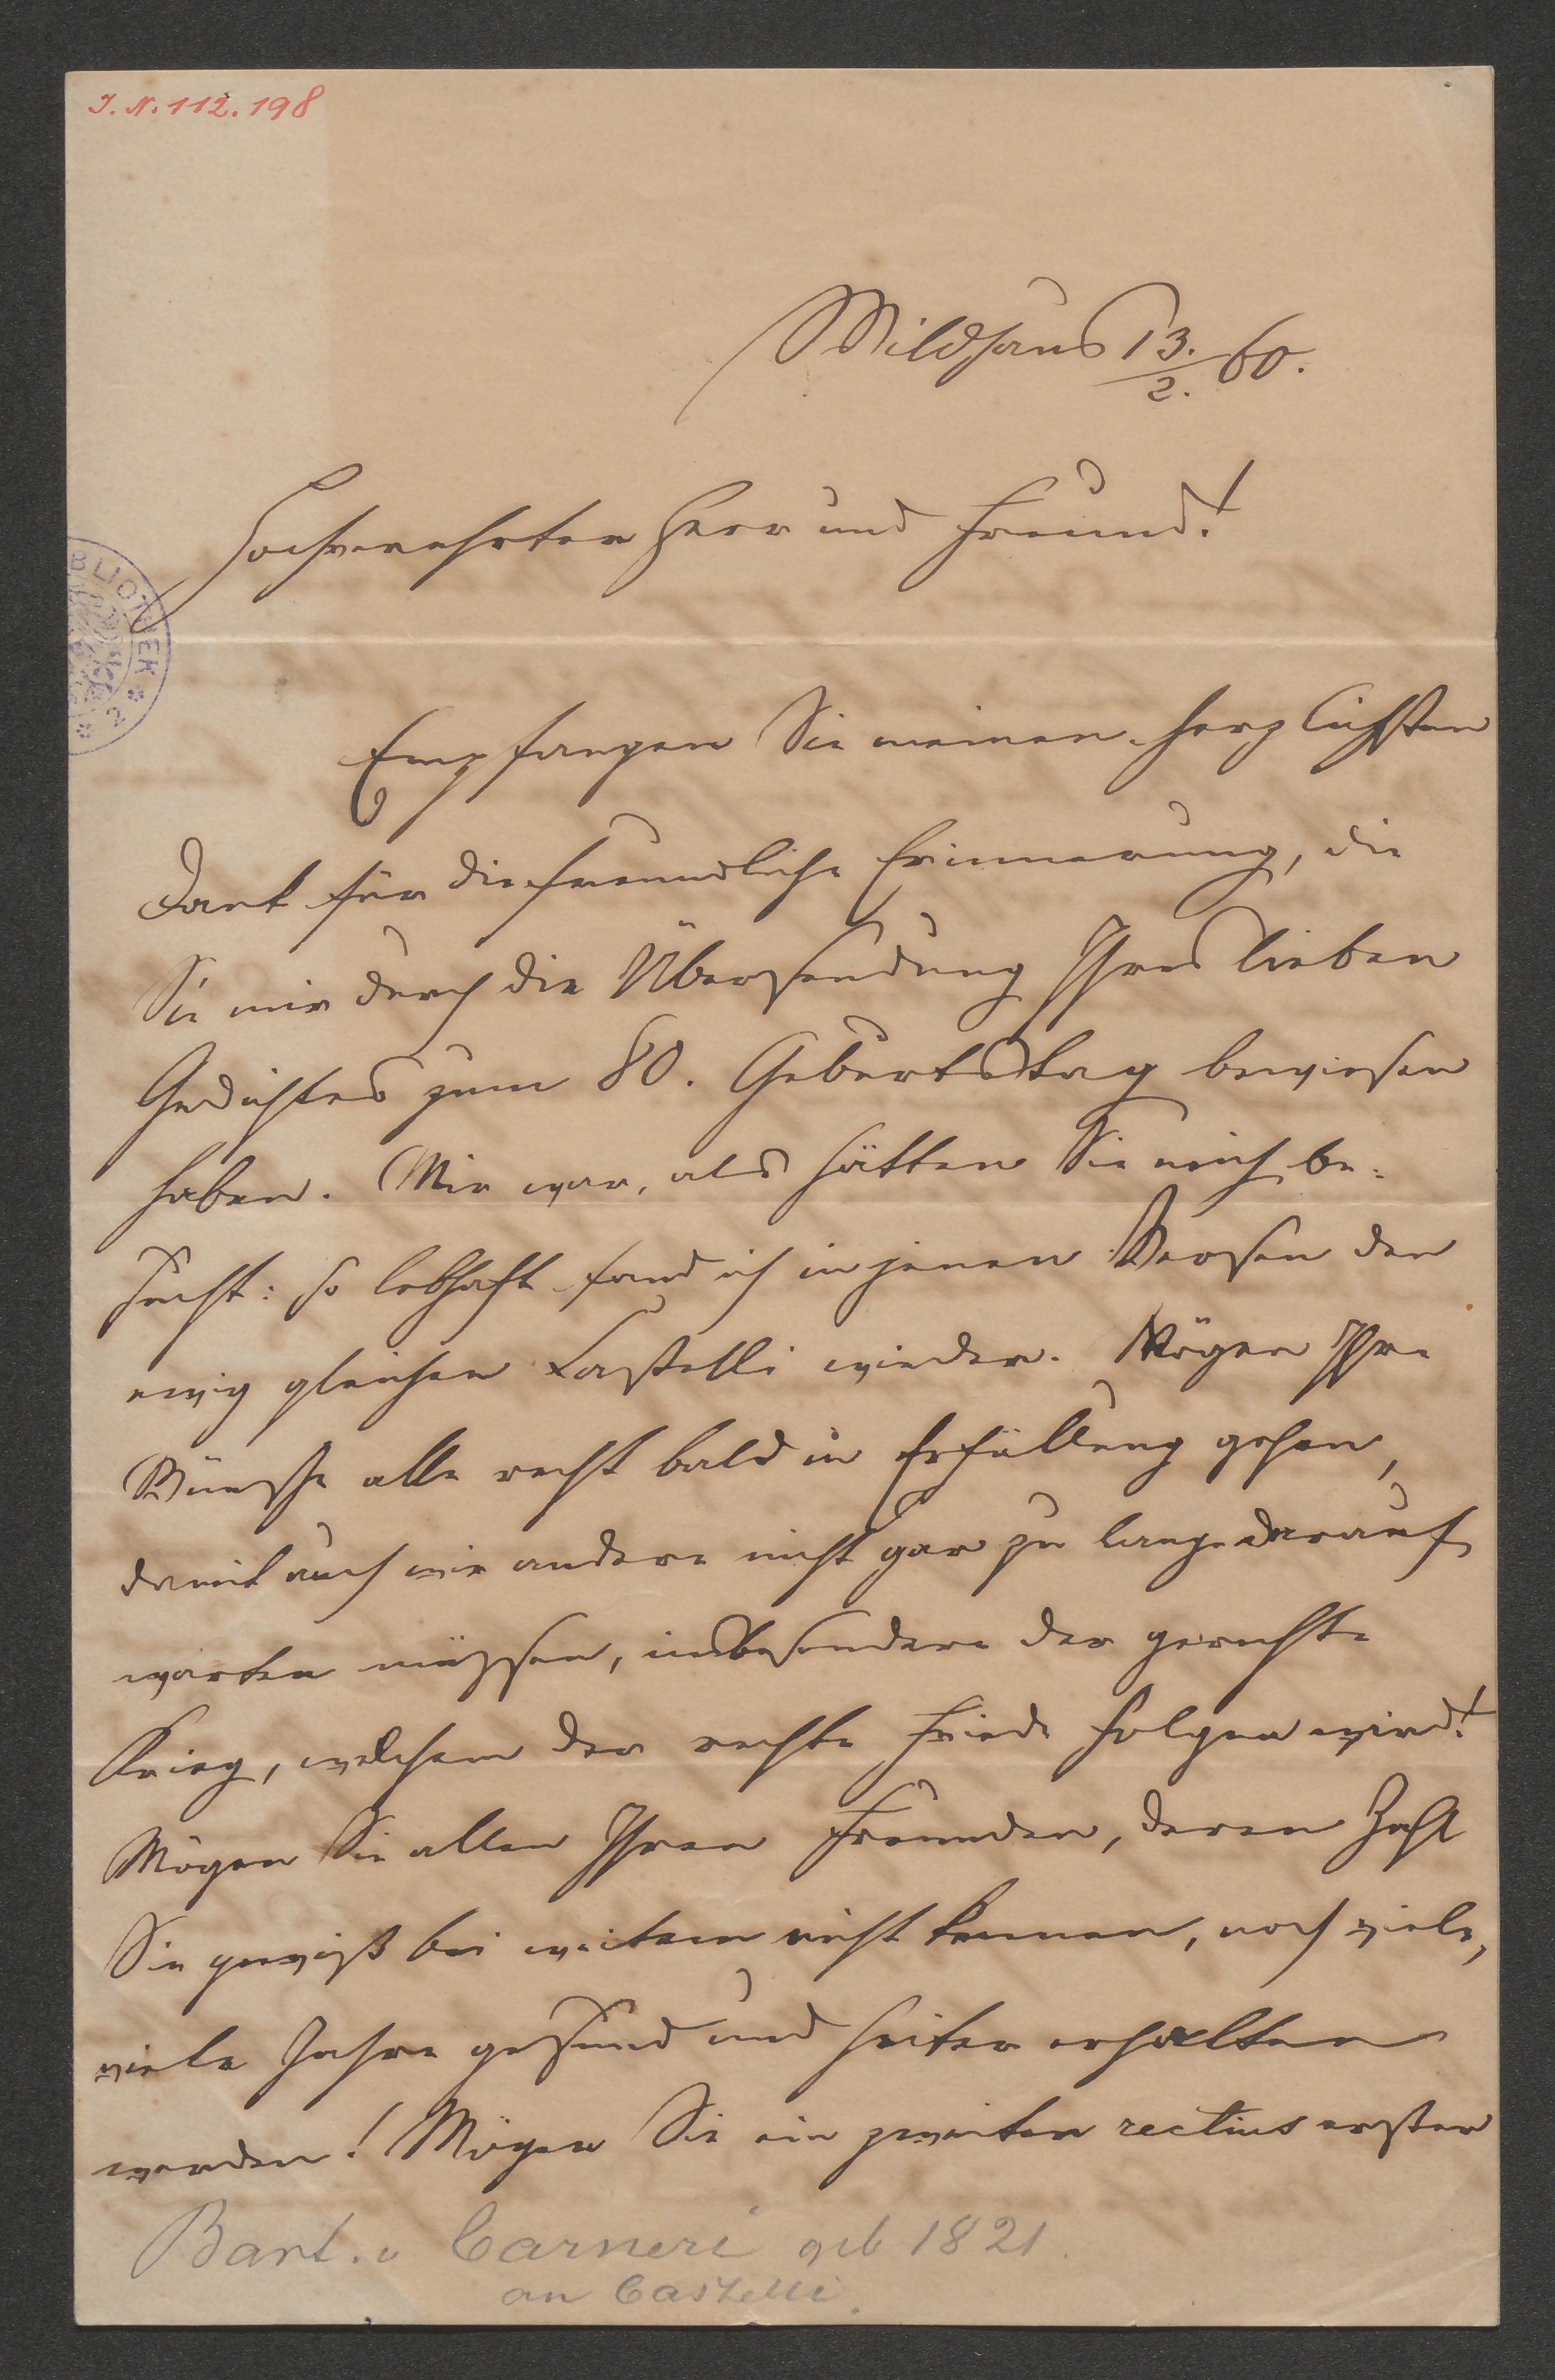 I. N. 112.198
Wildhaus 13./2. 60.
Hochverehrter Herr und Freund!
BLIOTHEK
Empfangen Sie meinen herzlichsten
Dank für die freundliche Erinnerung, die
Sie mir durch die Übersendung Ihres lieben
Gedichtes zum 80. Geburtstag bewiesen
haben. Mir war, als hätten Sie mich be-
sucht: so lebhaft fand ich in jenen Versen den
ewig gleichen Castelli wieder. Mögen Ihre
Wünsche alle recht bald in Erfüllung gehen,
damit auch wir andere nicht gar zu lange darauf
warten müssen, insbesondere der gerechte
Krieg, welchem der rechte Friede folgen wird!
Mögen Sie allen Ihren Freunden, deren Zahl
Sie gewiß bei weitem nicht kennen, noch viele,
viele Jahre gesund und heiter erhalten
werden! Mögen Sie ein zweiter rectius erster
Bart. v Carneri geb 1821.
an Castelli.